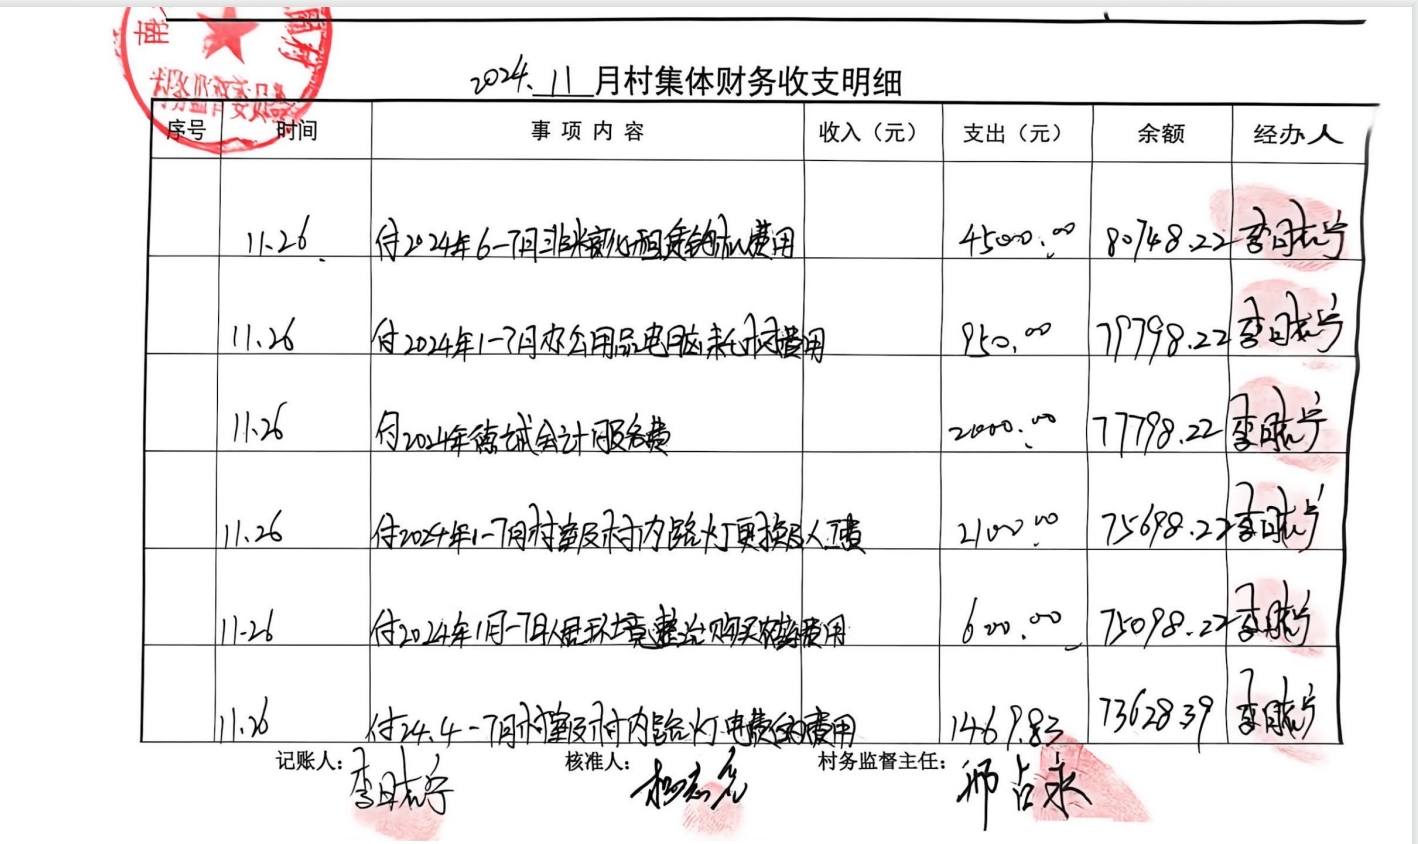 南
2024.11月村集体财务收支明细
序号 时间 事项内容 收入（元） 支出（元） 余额 经办人
11.26 付2024年6-7月非 租赁 费用 45000.00 80748.22
11.26 付2024年1-7月办公用品电脑耗材费用 950.00 79798.22
11.26 付2024年德诚会计服务费 2000.00 77798.22
11.26 付2024年1-7月村室及村内路灯更换及人工费 2100.00 75698.22
11.26 付2024年1月-7月人居环境整治购买 费用 600.00 75098.22
11.26 付24.4-7月村室及村内路灯电费的费用 1469.83 73628.39
记账人： 核准人： 村务监督主任：师占永